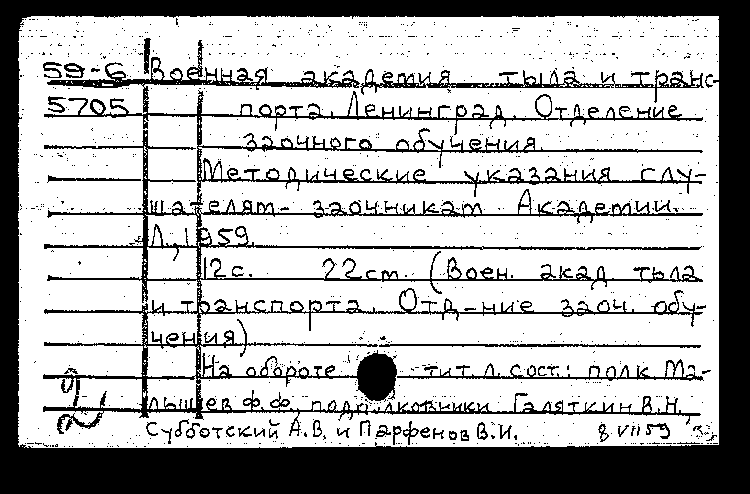 59-6 Военная академия тыла и транс-
5705 порта. Ленинград. Отделение
заочного обучения.
Методические указания слу-
шателям- заочникам Академии.
Л., 1959.
12 с. 22 cm. (Воен. акад тыла
и транспорта. Отд-ние заоч. обу-
чения)
На обороте тит. л. сост.: полк Ма-
лышев Ф.Ф., подполковники Галяткин В.Н.,
Субботский А.В. и Парфенов В.И. 8 VII 59